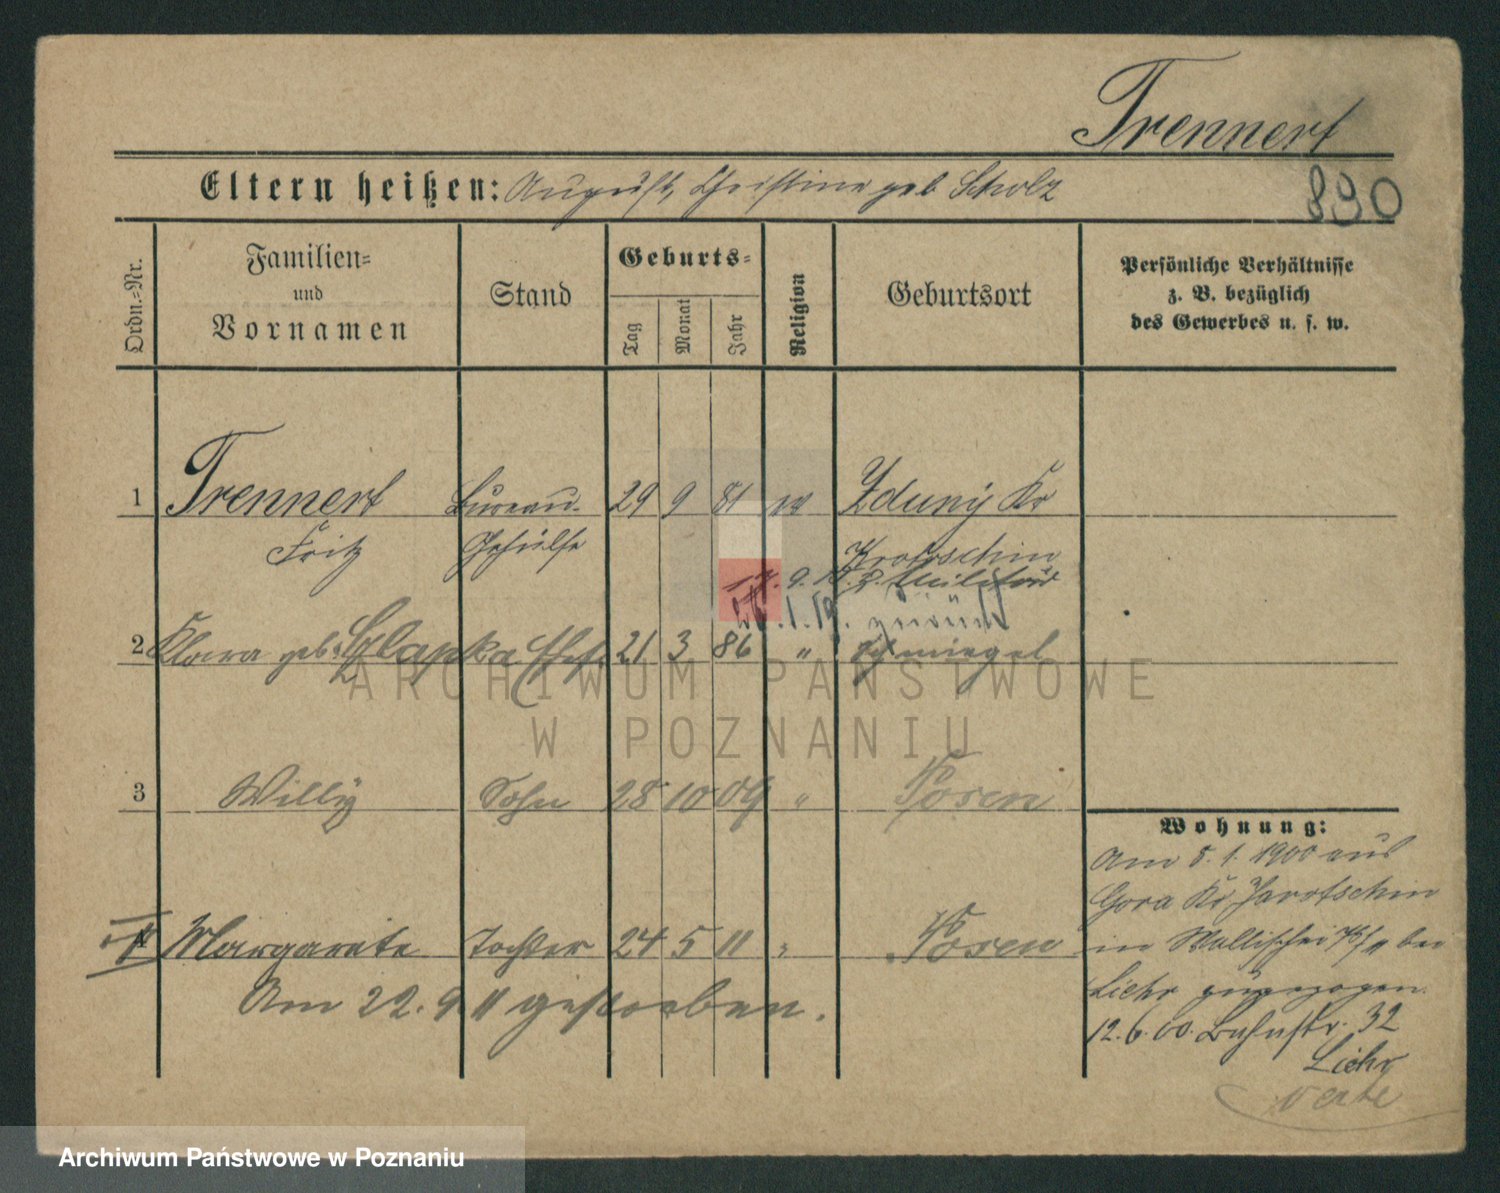 Trennert
Eltern heißen: August, Christine geb Scholz
890
Ordn.=Nr.
Familien=
und
Vornamen
Stand
Geburts=
Tag
Monat
Jahr
Religion
Geburtsort
Persönliche Verhältnisse
z. B. bezüglich
des Gewerbes u. s. w.
1 Trennert Bureau- 29 9 81 Zduny Kr
Fritz Gehülfe Krotoschin
z. Militär
zurück
2 Klara geb. Szlapka Ehefr. 21 3 86 " Schmiegel
3 Willy Sohn 28 10 09 " Posen
4 Margarete Tochter 24 5 11 " Posen
Am 22. 9. 11 gestorben.
Wohnung:
Am 5. 1. 1900 aus
Gora Kr Jarotschin
in Wallischei bei
Liehr zugezogen.
12.6.00. Bahnstr. 32
Liehr
verte
ARCHIWUM PAŃSTWOWE
W POZNANIU
Archiwum Państwowe w Poznaniu